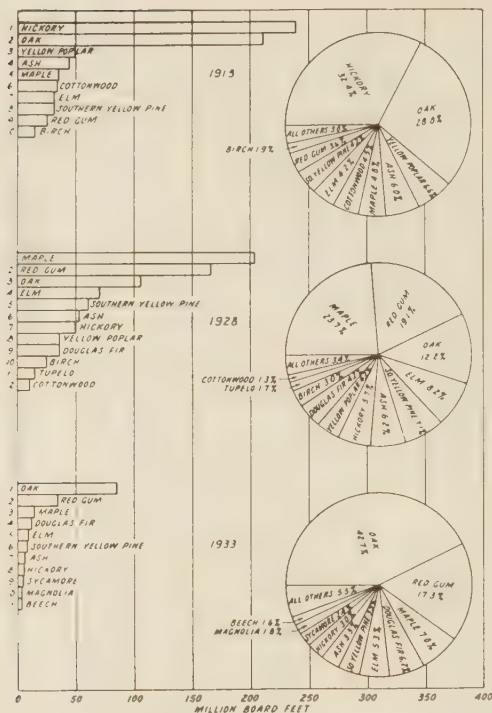 1 HICKORY
2 OAK
3 YELLOW POPLAR
4 ASH
5 MAPLE
6 COTTONWOOD
7 ELM
8 SOUTHERN YELLOW PINE
9 RED GUM
BIRCH
HICKORY
OAK
28.8%
ALL OTHERS
RED GUM 3.6%
BIRCH 1.9%
SO YELLOW PINE
ELM 4.2%
COTTONWOOD 4.5%
MAPLE 4.8%
ASH 6.0%
YELLOW POPLAR 6.6%
MAPLE
2 RED GUM
3 OAK
4 ELM
5 SOUTHERN YELLOW PINE
6 ASH
7 HICKORY
8 YELLOW POPLAR
9 DOUGLAS FIR
10 BIRCH
TUPELO
COTTONWOOD
1928
MAPLE
23.7%
RED GUM
19.1%
OAK
12.2%
ELM 8.2%
SO YELLOW PINE 7.1%
ASH 6.2%
HICKORY 5.7%
YELLOW POPLAR
DOUGLAS FIR
BIRCH 3.0%
TUPELO 1.7%
COTTONWOOD 1.3%
ALL OTHERS
1 OAK
2 RED GUM
3 MAPLE
4 DOUGLAS FIR
5 ELM
6 SOUTHERN YELLOW PINE
7 ASH
8 HICKORY
9 SYCAMORE
MAGNOLIA
BEECH
1933
OAK
42.7%
RED GUM
17.3%
MAPLE 7.0%
DOUGLAS FIR 6.2%
ELM 5.3%
SO YELLOW PINE
ASH
HICKORY 3.0%
SYCAMORE
MAGNOLIA 1.8%
BEECH 1.6%
ALL OTHERS 5.5%
0 50 100 150 200 250 300 350 400
MILLION BOARD FEET